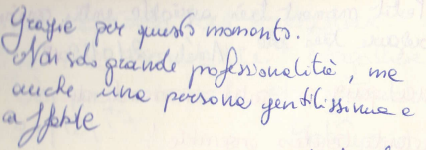 Grazie per questo momento.
Non solo grande professionalità, ma
anche una persona gentilissima e
affabile